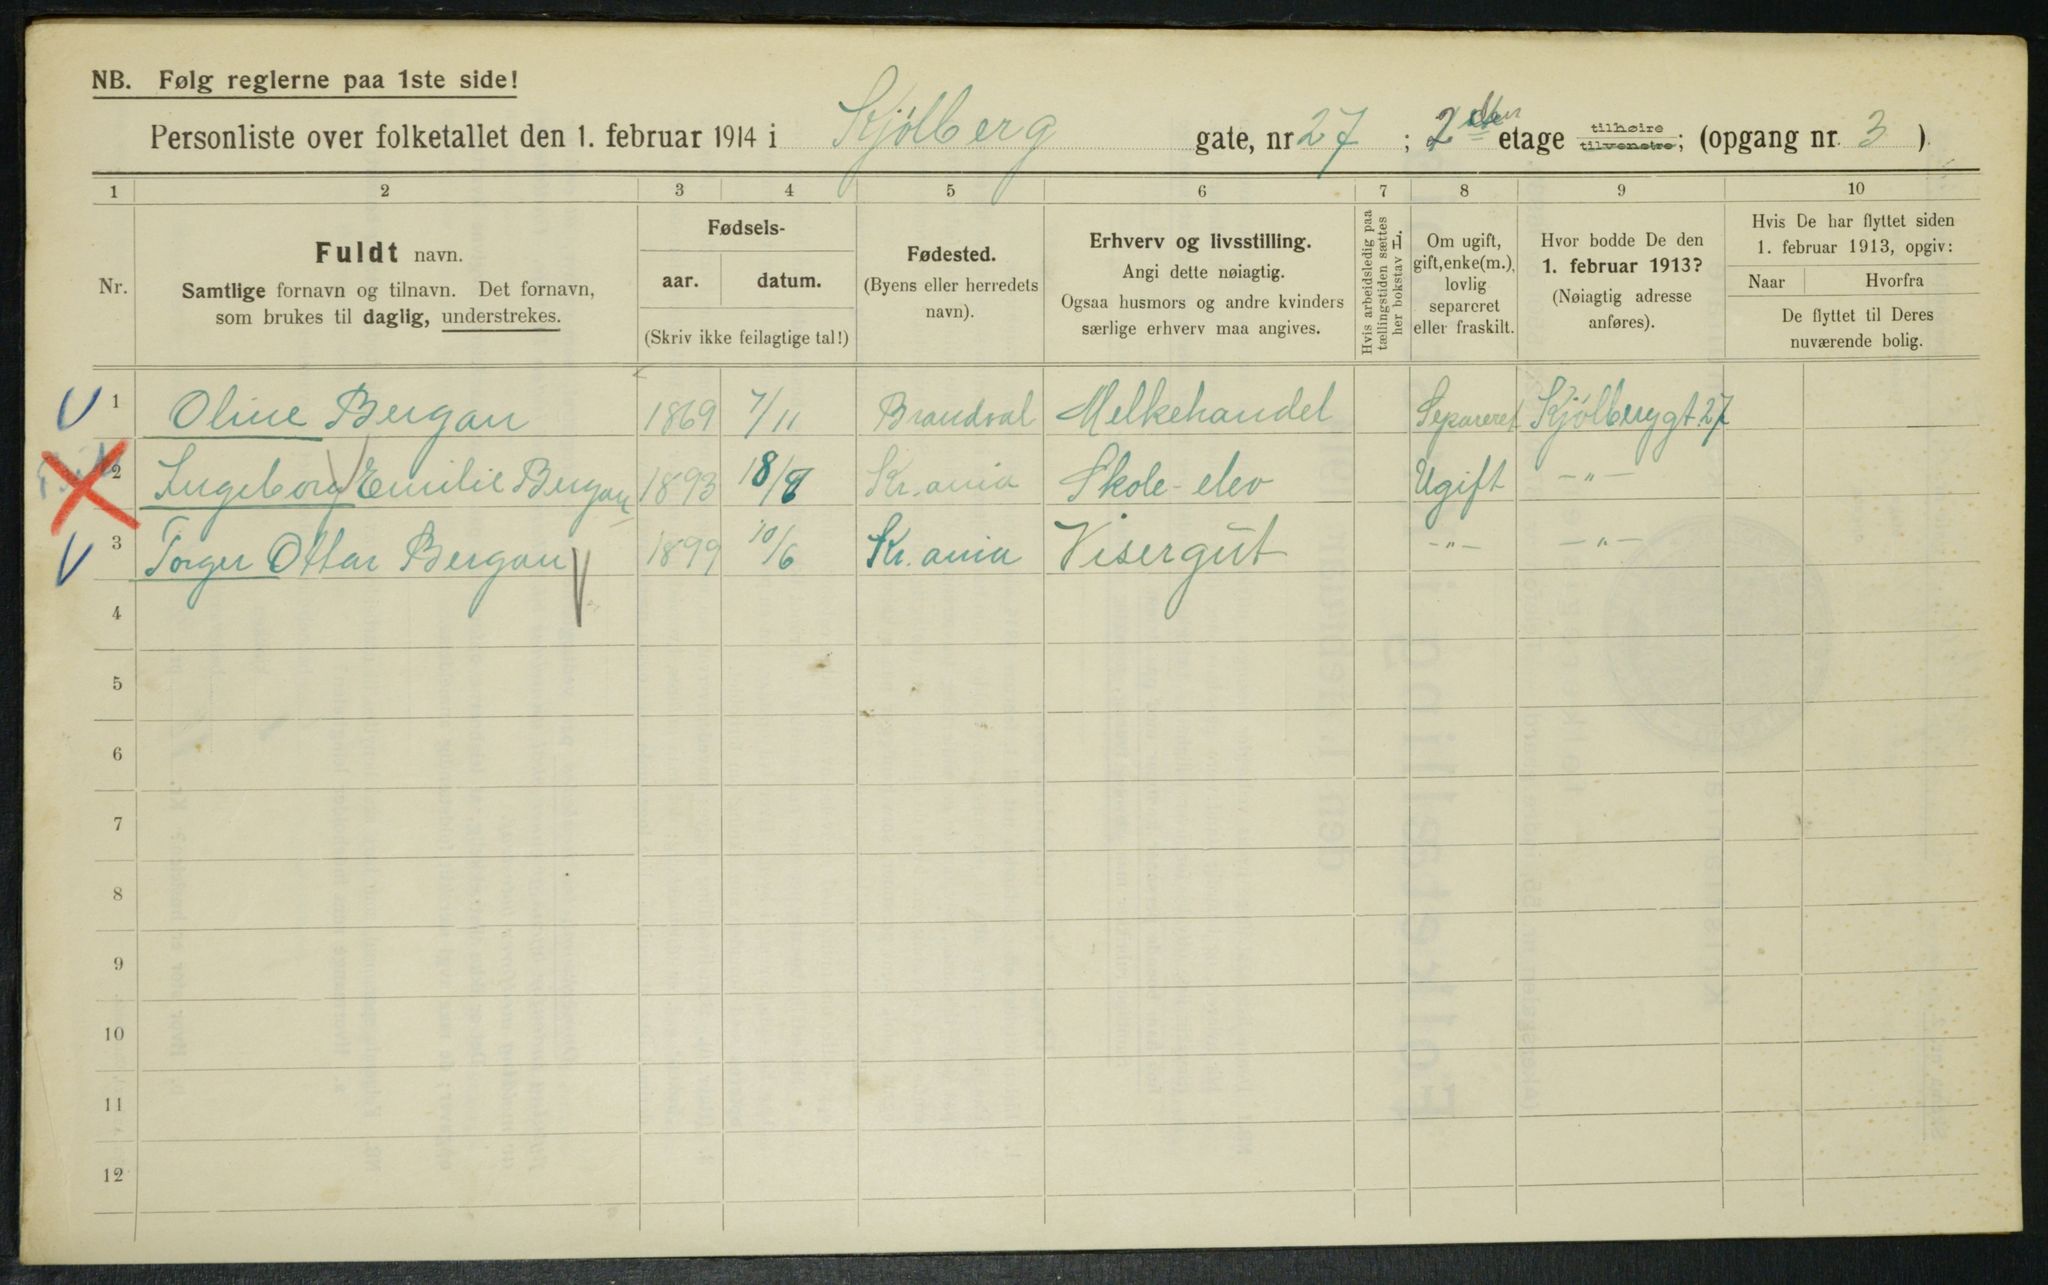 NB. Følg reglerne paa 1ste side!
Personliste over folketallet den 1. februar 1914 i Kjølberg gate, nr 27 ; 2 etage tilhøire tilvenstre; (opgang nr. 3 ).
1 2 3 4 5 6 7 8 9 10
Nr.
Fuldt navn.
Samtlige fornavn og tilnavn. Det fornavn,
som brukes til daglig, understrekes.
Fødsels-
aar. datum.
(Skriv ikke feilagtige tal!)
Fødested.
(Byens eller herredets
navn).
Erhverv og livsstilling.
Angi dette nøiagtig.
Ogsaa husmors og andre kvinders
særlige erhverv maa angives.
Hvis arbeidsledig paa
tællingstiden sættes
her bokstav L.
Om ugift,
gift, enke(m.),
lovlig
separeret
eller fraskilt.
Hvor bodde De den
1. februar 1913?
(Nøiagtig adresse
anføres).
Hvis De har flyttet siden
1. februar 1913, opgiv:
Naar Hvorfra
De flyttet til Deres
nuværende bolig.
1 Oline Bergan 1869 7/11 Brandval Melkehandel Separeret Kjølberggt. 27
2 Ingeborg Emilie Bergan 1893 18/8 Kr.ania Skole-elev Ugift -„-
3 Torger Ottar Bergan 1899 10/6 Kr.ania Visergut -„- -„-
4
5
6
7
8
9
10
11
12